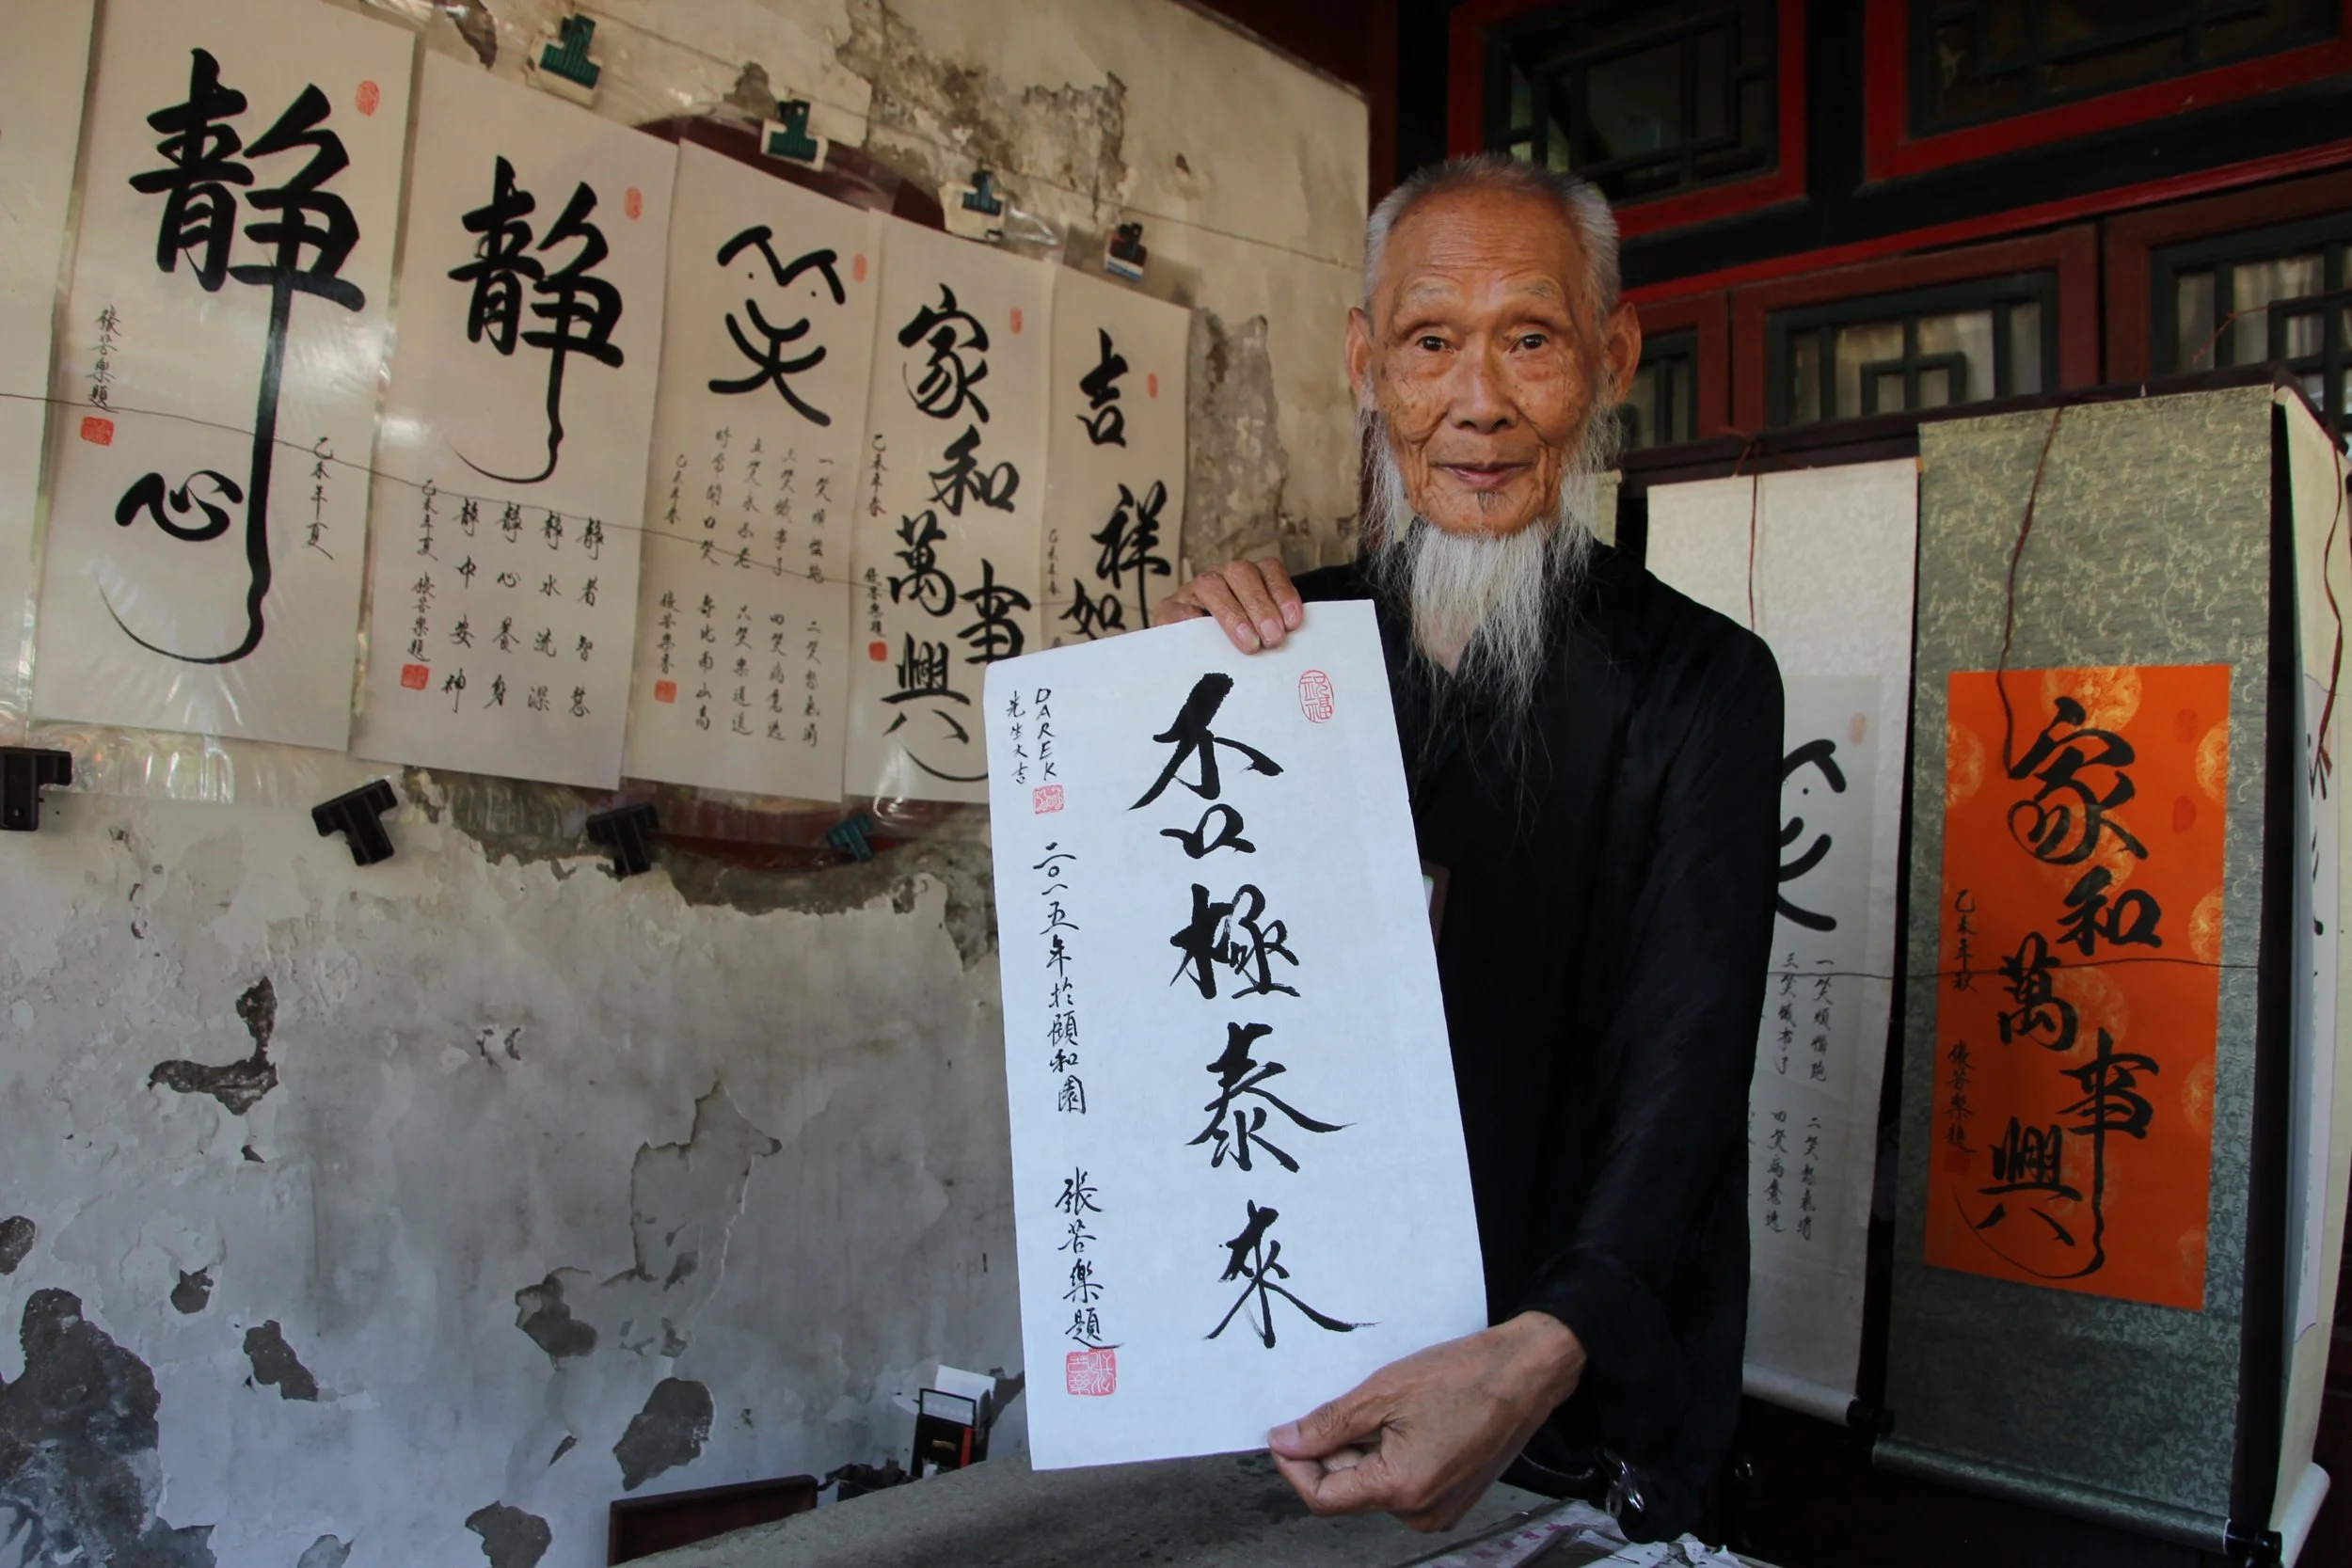 静心
乙未年夏
張苦樂題
静
静者智慧
静水流深
静心養身
静中安神
乙未年夏 張苦樂題
笑
一笑煩惱跑 二笑怒氣消
三笑憾事了 四笑病魔逃
五笑永不老 六笑樂逍遥
時常開口笑 壽比南山高
乙未年春 張苦樂書
家和萬事興
乙未年春 張苦樂題
吉祥如
乙未年春
祝福
否極泰來
DAREK
先生大吉
二〇一五年於頤和園 張苦樂題
一笑煩惱跑 二笑怒氣消
三笑憾事了 四笑病魔逃
家和萬事興
乙未年秋 張苦樂題